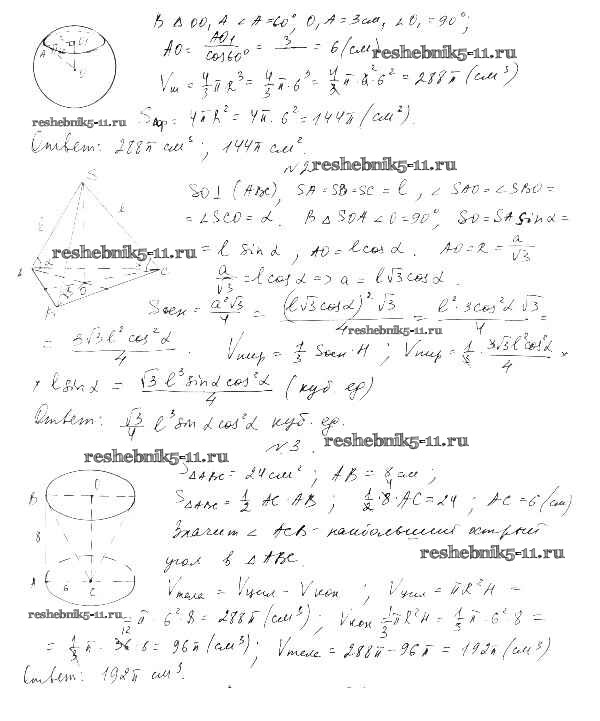 В △ OO₁A ∠A = 60°, O₁A = 3см, ∠O₁ = 90°;
AO = AO₁/cos60° = 3/ = 6 (см)
reshebnik5-11.ru
Vш = 4/3 πR³ = 4/3 π·6³ = 4/3 π·6²·6² = 288π (см³)
reshebnik5-11.ru
Sсф = 4πR² = 4π·6² = 144π (см²).
Ответ: 288π см³; 144π см².
№2
reshebnik5-11.ru
SO⊥(ABC), SA=SB=SC=l, ∠SAO=∠SBO=
=∠SCO=α. В △SOA ∠O=90°, SO=SAsinα=
reshebnik5-11.ru
= l sinα, AO=lcosα. AO=R= a/√3
a/√3 = lcosα => a = l√3cosα.
Sосн = a²√3/4 = (l√3cosα)²·√3/4 = l²·3cos²α√3/4 =
reshebnik5-11.ru
= 3√3l²cos²α/4. Vпир = 1/3 Sосн·H; Vпир = 1/3 · 3√3l²cos²α/4 ×
× lsinα = √3l³sinαcos²α/4 (куб. ед)
Ответ: √3/4 l³sinαcos²α куб. ед.
reshebnik5-11.ru
№3.
reshebnik5-11.ru
S△ABC = 24см²; AB = 8см;
S△ABC = 1/2 AC·AB; 1/2·8·AC=24; AC=6(см)
Значит ∠ACB - наибольший острый
угол в △ABC.
reshebnik5-11.ru
Vтела = Vцил - Vкон; Vцил = πR²H =
reshebnik5-11.ru
= π·6²·8 = 288π(см³); Vкон = 1/3πR²H = 1/3π·6²·8 =
= 1/3π·36·8 = 96π(см³); Vтела = 288π-96π = 192π(см³)
Ответ: 192π см³.